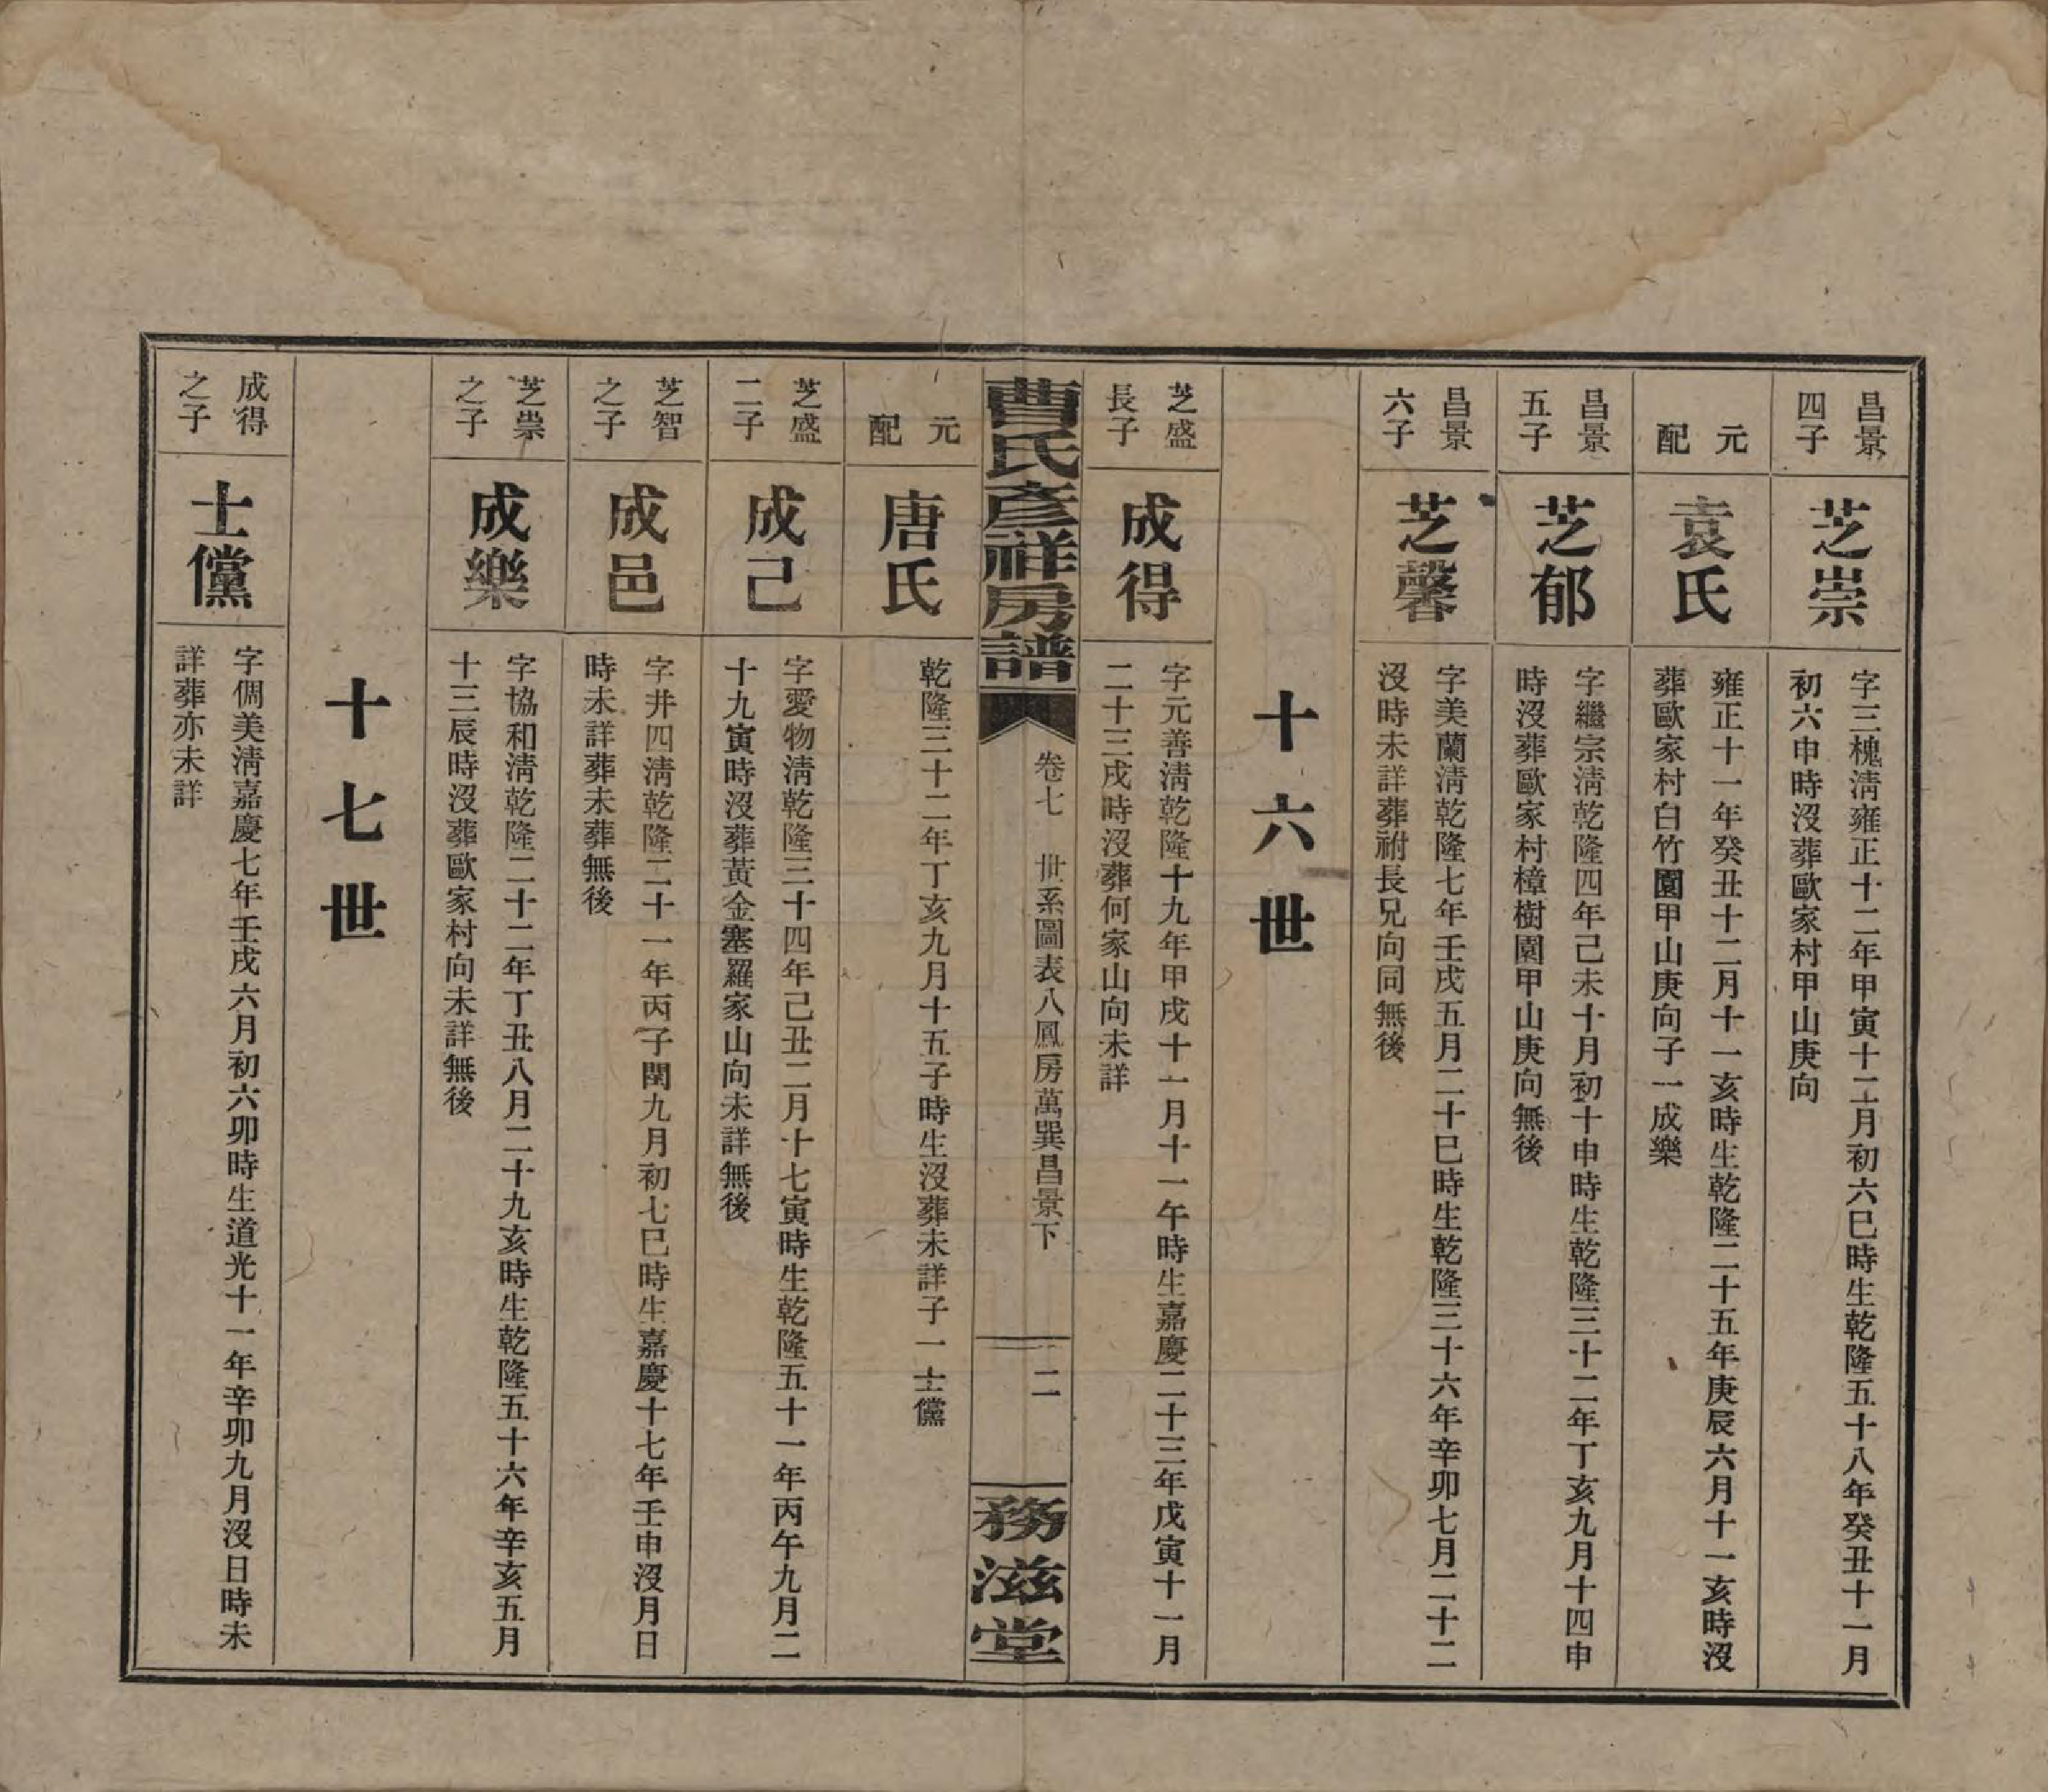 昌景
四子
芝崇
字三槐淸雍正十二年甲寅十二月初六巳時生乾隆五十八年癸丑十一月
初六申時沒葬歐家村甲山庚向
元
配
袁氏
雍正十一年癸丑十二月十一亥時生乾隆二十五年庚辰六月十一亥時沒
葬歐家村白竹園甲山庚向子一成樂
昌景
五子
芝郁
字繼宗淸乾隆四年己未十月初十申時生乾隆三十二年丁亥九月十四申
時沒葬歐家村樟樹園甲山庚向無後
昌景
六子
芝馨
字美蘭淸乾隆七年壬戌五月二十巳時生乾隆三十六年辛卯七月二十二
沒時未詳葬祔長兄向同無後
十六世
芝盛
長子
成得
字元善淸乾隆十九年甲戌十一月十一午時生嘉慶二十三年戊寅十一月
二十三戌時沒葬何家山向未詳
曹氏彥祥房譜
卷七 世系圖表八鳳房萬巽昌景下
二
務滋堂
元
配
唐氏
乾隆三十二年丁亥九月十五子時生沒葬未詳子一士儻
芝盛
二子
成己
字愛物淸乾隆三十四年己丑二月十七寅時生乾隆五十一年丙午九月二
十九寅時沒葬黃金塞羅家山向未詳無後
芝智
之子
成邑
字井四淸乾隆二十一年丙子閏九月初七巳時生嘉慶十七年壬申沒月日
時未詳葬未葬無後
芝祟
之子
成樂
字協和淸乾隆二十二年丁丑八月二十九亥時生乾隆五十六年辛亥五月
十三辰時沒葬歐家村向未詳無後
十七世
成得
之子
士儻
字倜美淸嘉慶七年壬戌六月初六卯時生道光十一年辛卯九月沒日時未
詳葬亦未詳